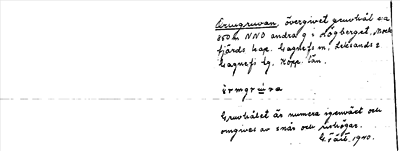 Ormgruvan, övergivet gruvhål c:a
850 m NNO andra g i Högberget, Mock-
fjärds kap. Gagnefs sn, Leksands o
Gagnefs tg. Kopp. län.
ò r m g r ù v a
Gruvhålet är numera igenväxt och
omgives av snår och
1940.